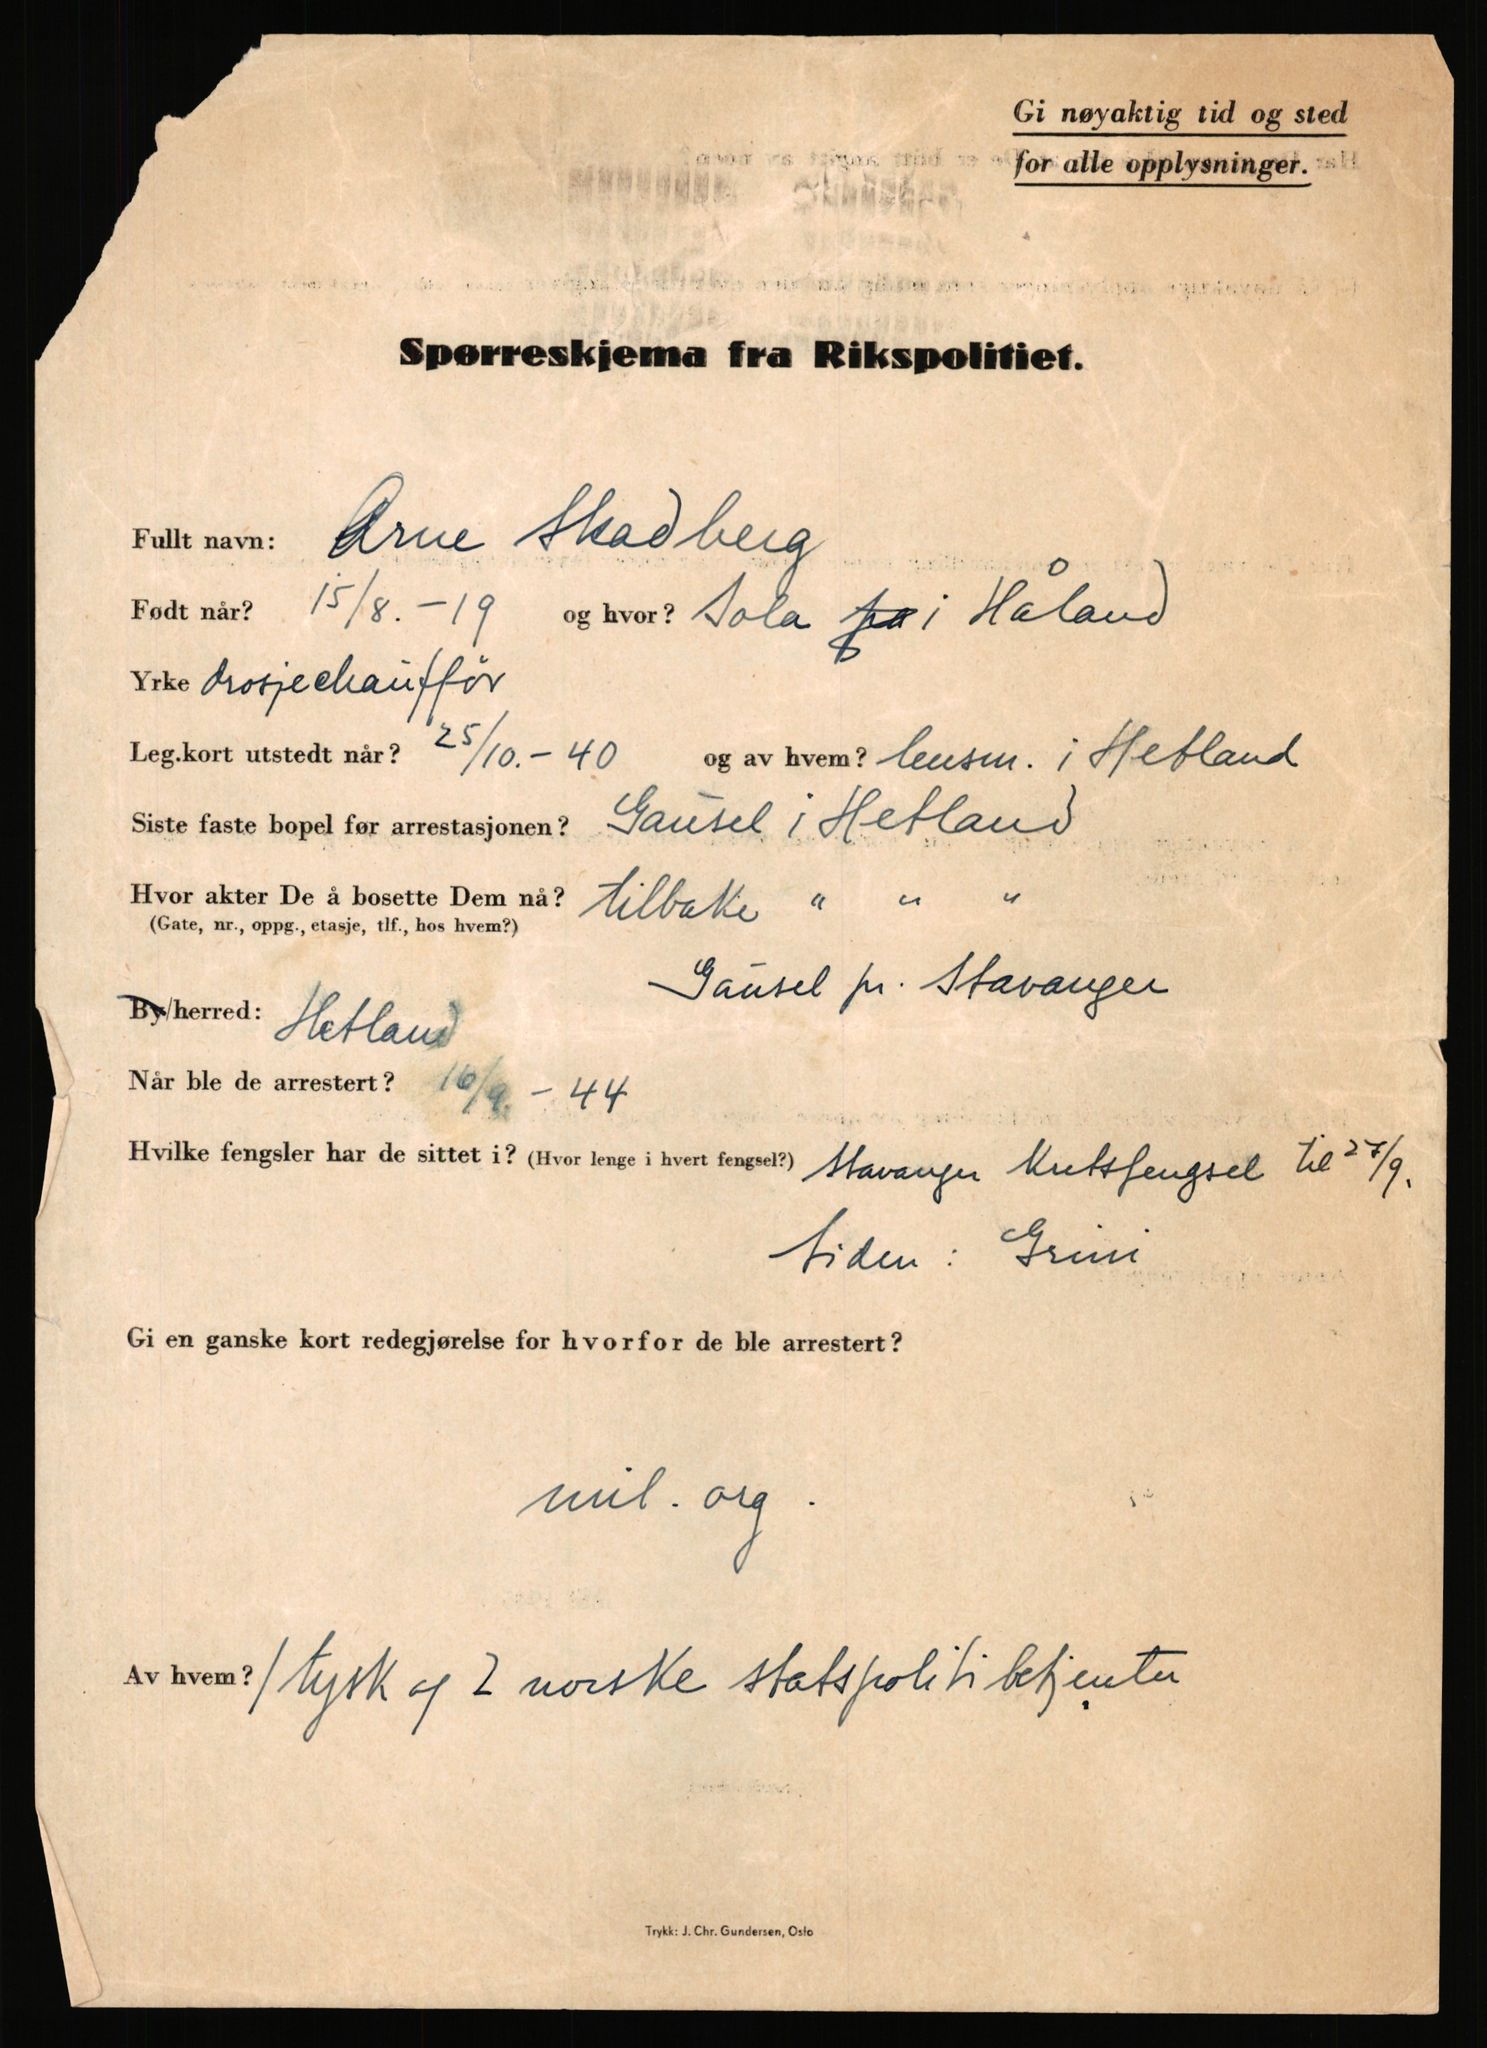 Gi nøyaktig tid og sted
for alle opplysninger.
Spørreskjema fra Rikspolitiet.
Fullt navn: Arne Skadberg
Født når? 15/8. - 19 og hvor? Sola i Håland
Yrke drosjechauffør
Leg.kort utstedt når? 25/10. - 40 og av hvem? lensm. i Hetland
Siste faste bopel før arrestasjonen? Gausel i Hetland
Hvor akter De å bosette Dem nå? tilbake " " "
(Gate, nr., oppg., etasje, tlf., hos hvem?)
Gausel pr. Stavanger
By/herred: Hetland
Når ble de arrestert? 16/9. - 44
Hvilke fengsler har de sittet i? (Hvor lenge i hvert fengsel?) Stavanger Kretsfengsel til 27/9.
Siden : Grini
Gi en ganske kort redegjørelse for hvorfor de ble arrestert?
mil. org.
Av hvem? 1 tysk og 2 norske statspolitibetjenter
Trykk: J. Chr. Gundersen, Oslo